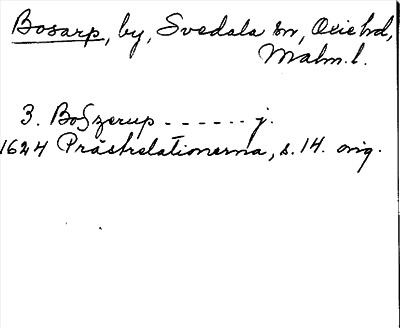 Bosarp, by, Svedala sn, Oxie hd,
Malm. l.
3. Boszerup - - - - - - j.
1624 Prästrelationerna, s. 14. orig.